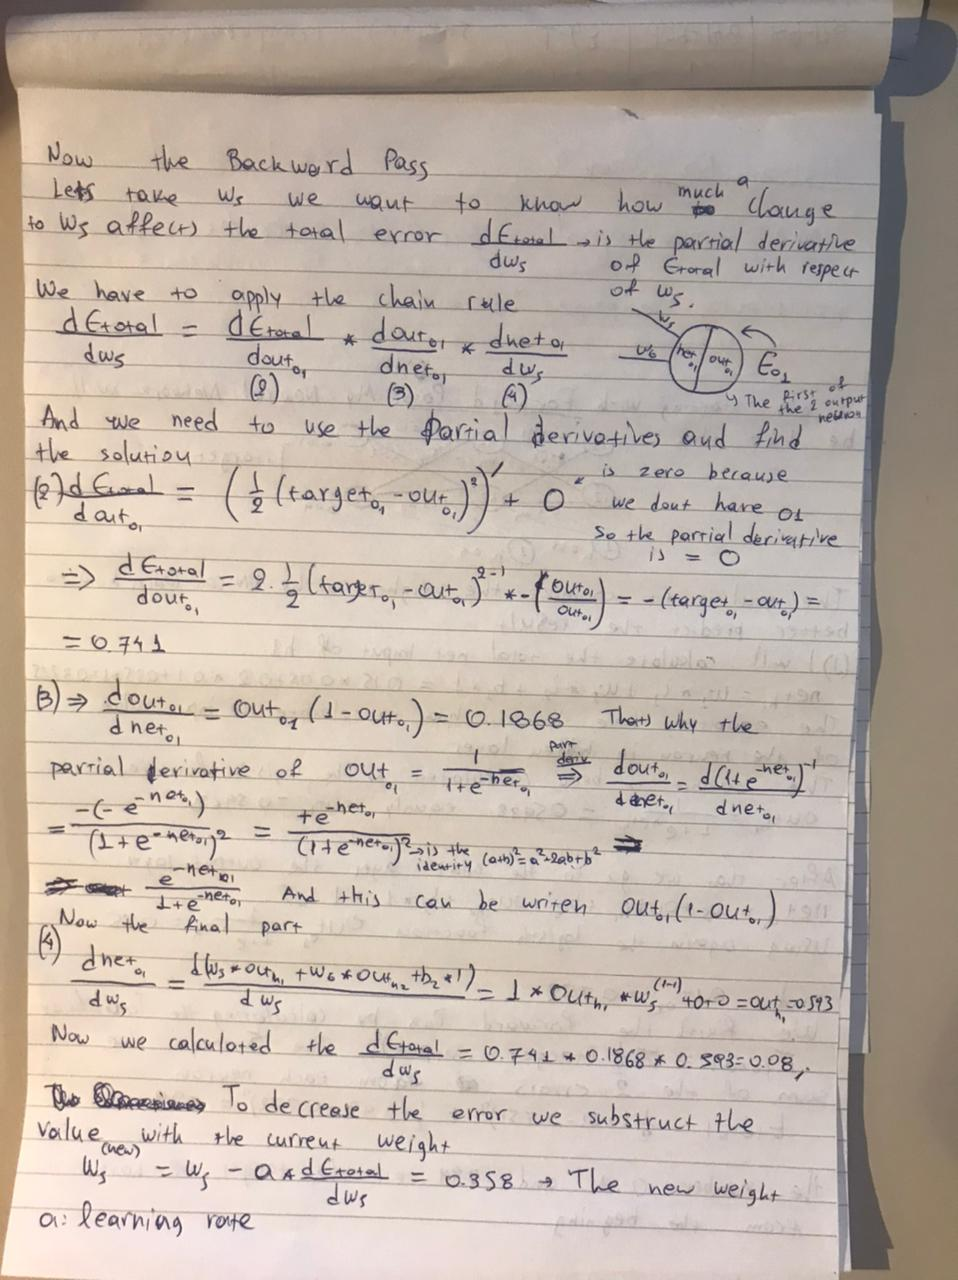 Now the Backward Pass
Lets take W5 we want to know how much a change
to W5 affects the total error dEtotal/dw5 → is the partial derivative
of Etotal with respect
of W5.
We have to apply the chain rule
dEtotal/dw5 = dEtotal/douto1 * douto1/dneto1 * dneto1/dw5
(2) (3) (4)
W5
W6 neto1 outo1 Eo1
↳ The first of
the 2 output
neuron
And we need to use the Partial derivatives and find
the solution
(2) dEtotal/douto1 = (1/2 (targeto1 - outo1)²)' + 0 ← is zero because
we dont have o1
so the partial derivative
is = 0
=> dEtotal/douto1 = 2 · 1/2 (targeto1 - outo1)^2-1 * -(outo1/outo1) = -(targeto1 - outo1) =
= 0.741
(3) => douto1/dneto1 = outo1 (1 - outo1) = 0.1868 Thats why the
partial derivative of outo1 = 1/(1+e^-neto1) part deriv => douto1/dneto1 = d(1+e^-neto1)^-1/dneto1
= -(-e^-neto1)/(1+e^-neto1)² = +e^-neto1/(1+e^-neto1)² → is the
identity (a+b)²=a²+2ab+b² =>
e^-neto1/1+e^-neto1 And this can be writen outo1(1-outo1)
Now the final part
(4) dneto1/dw5 = d(w5*outh1 + w6*outh2 + b2*1)/dw5 = 1 * outh1 * w5^(1-1) + 0 + 0 = outh1 = 0593
Now we calculated the dEtotal/dw5 = 0.741 * 0.1868 * 0.593 = 0.08,
To decrease the error we substruct the
value with the current weight
W5(new) = W5 - a * dEtotal/dw5 = 0.358 → The new weight
a: learning rate